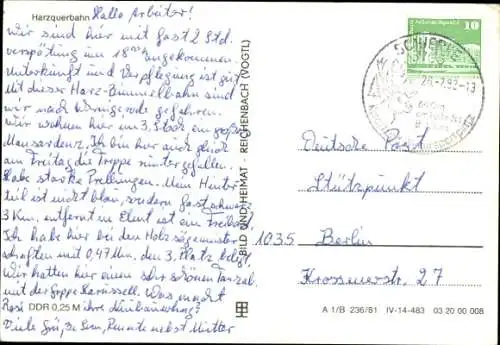 Harzquerbahn
Hallo Arbeiter!
Wir sind hier mit fast 2 Std.
verspätung um 18 angekommen.
Unterkunft und Verpflegung ist gut
Mit dieser Harz-Bimmelbahn sind
wir nach gefahren.
Wir wohnen hier im 3. Stock ein großes
Mansardenz. Ich bin hier auch gleich
am Freitag die Treppe runtergefallen.
Habe starke Prellungen. Mein Hinter
teil ist nicht blau, sondern fast schwarz
3 Km. entfernt in Elent ist ein Freibad
Ich habe hier bei den Holzsägemeister
schaften mit 0,47 Min. den 3. Platz belegt.
Wir hatten hier einen sehr schönen Tanzab.
mit der Gruppe Karussell. Was macht
Rosi ihre
Viele Grüße Renate nebst Mutter
DDR 0,25 M
BILD UND HEIMAT · REICHENBACH (VOGTL)
10
SCHIERKE
28.-7.82-13
Deutsche Post
Stützpunkt
1035 Berlin
Krossenerstr. 27
A 1/B 236/81 IV-14-483 03 20 00 008